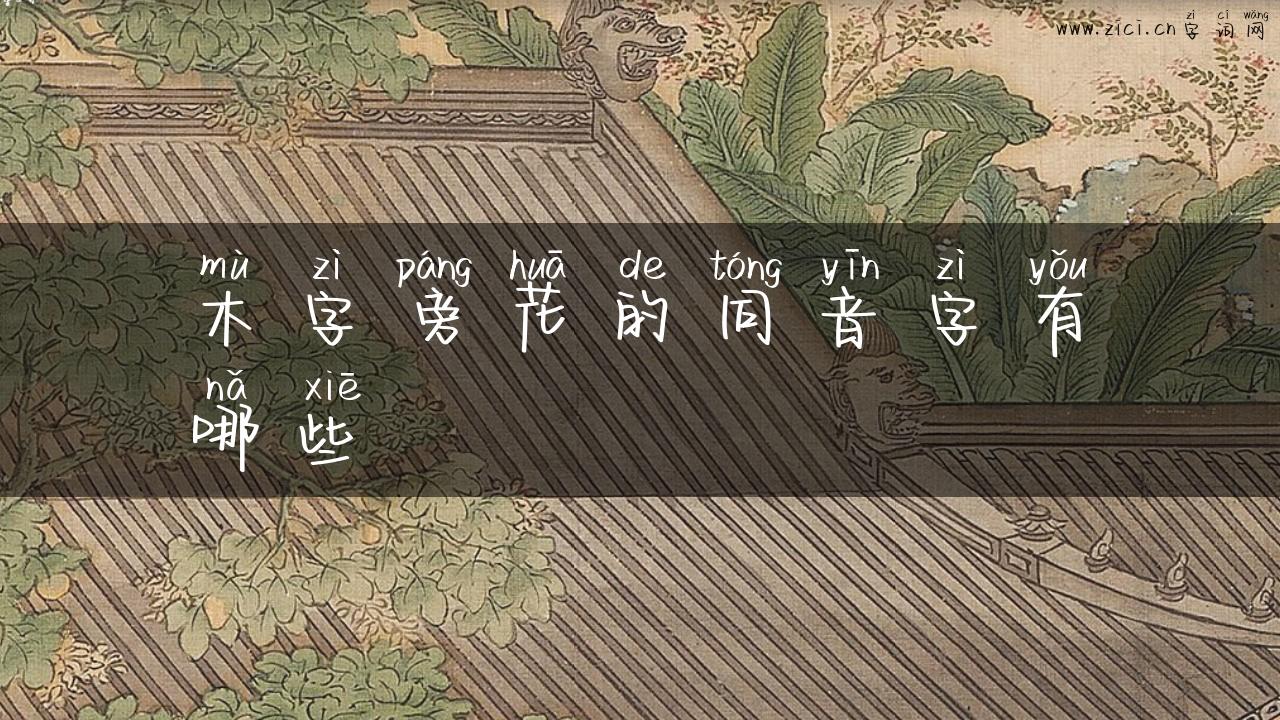 zì cí wǎng
www.zici.cn 字 词 网
mù zì páng huā de tóng yīn zì yǒu
木 字 旁 花 的 同 音 字 有
nǎ xiē
哪 些